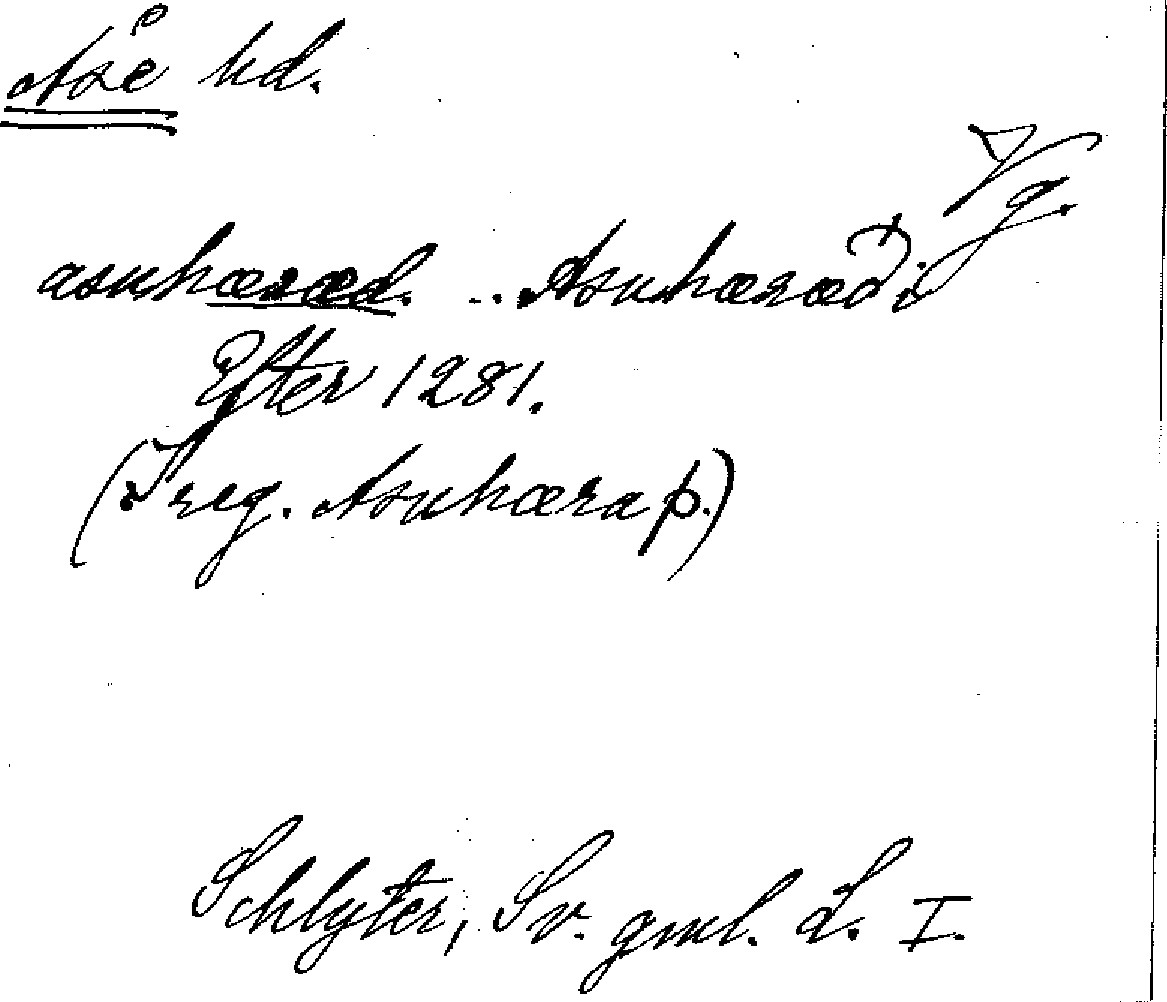 Åse hd.
Vg.
asuhæræd. .. Asuhæræði
Efter 1281.
(I reg. Asuhæraþ.)
Schlyter, Sv. gml. L. I.